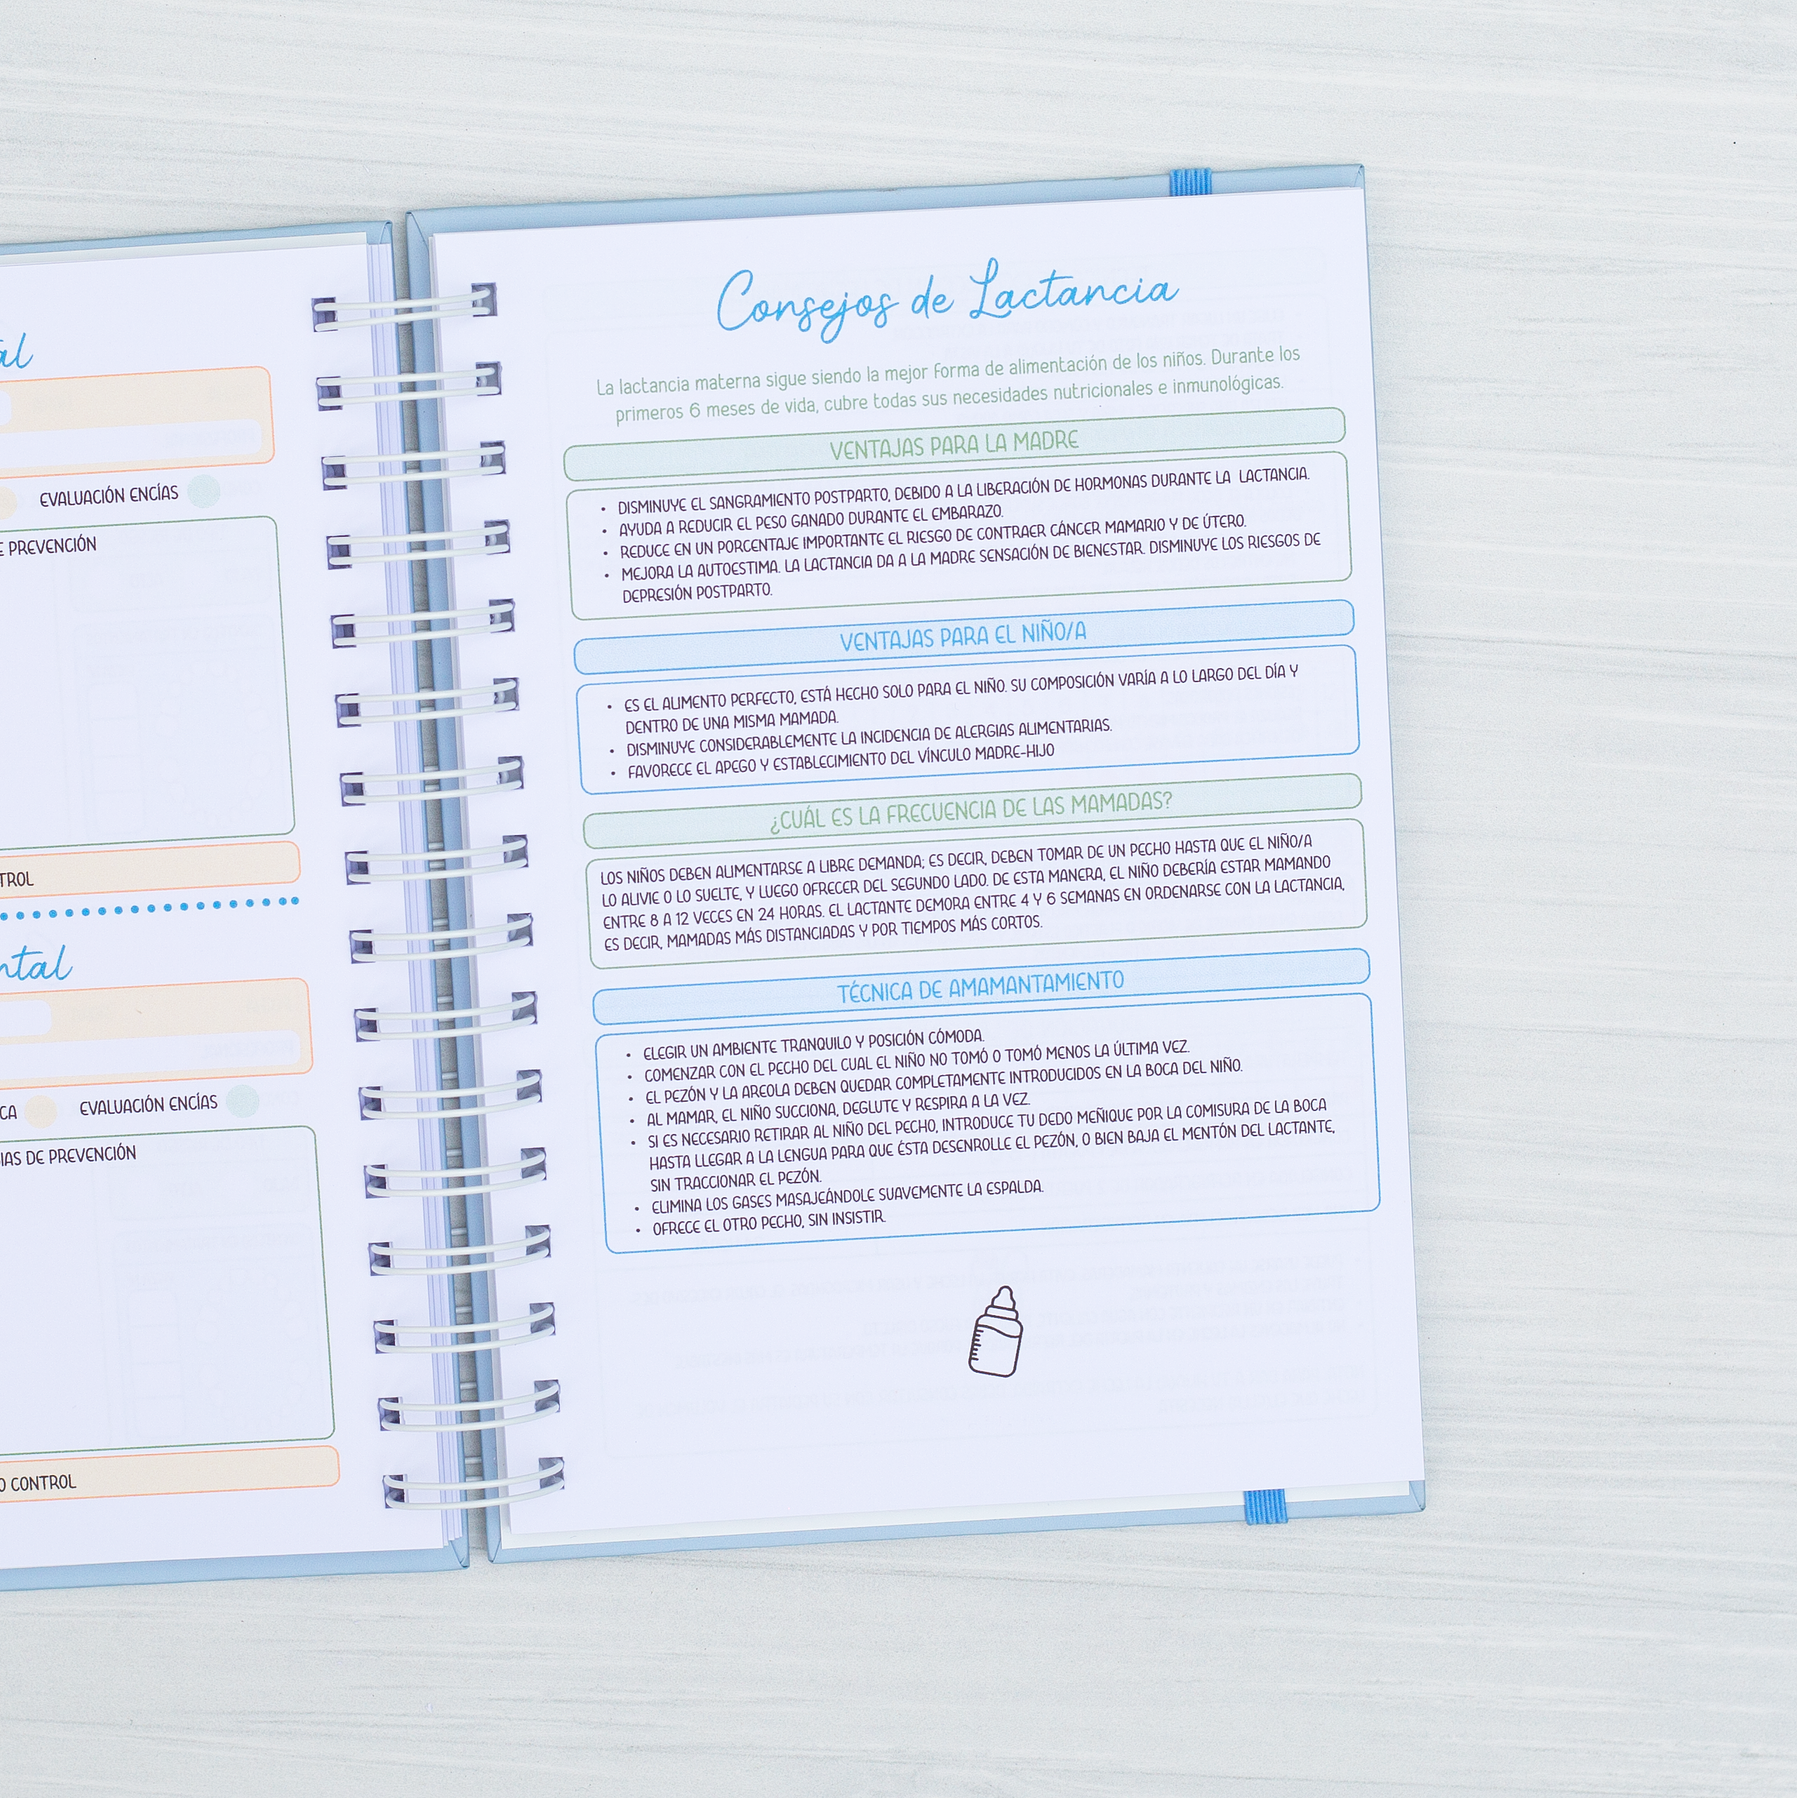 EVALUACIÓN ENCÍAS
E PREVENCIÓN
TROL
ntal
CA
EVALUACIÓN ENCÍAS
IAS DE PREVENCIÓN
O CONTROL
Consejos de Lactancia
La lactancia materna sigue siendo la mejor forma de alimentación de los niños. Durante los
primeros 6 meses de vida, cubre todas sus necesidades nutricionales e inmunológicas.
VENTAJAS PARA LA MADRE
• DISMINUYE EL SANGRAMIENTO POSTPARTO, DEBIDO A LA LIBERACIÓN DE HORMONAS DURANTE LA LACTANCIA.
• AYUDA A REDUCIR EL PESO GANADO DURANTE EL EMBARAZO.
• REDUCE EN UN PORCENTAJE IMPORTANTE EL RIESGO DE CONTRAER CÁNCER MAMARIO Y DE ÚTERO.
• MEJORA LA AUTOESTIMA. LA LACTANCIA DA A LA MADRE SENSACIÓN DE BIENESTAR. DISMINUYE LOS RIESGOS DE
DEPRESIÓN POSTPARTO.
VENTAJAS PARA EL NIÑO/A
• ES EL ALIMENTO PERFECTO, ESTÁ HECHO SOLO PARA EL NIÑO. SU COMPOSICIÓN VARÍA A LO LARGO DEL DÍA Y
DENTRO DE UNA MISMA MAMADA.
• DISMINUYE CONSIDERABLEMENTE LA INCIDENCIA DE ALERGIAS ALIMENTARIAS.
• FAVORECE EL APEGO Y ESTABLECIMIENTO DEL VÍNCULO MADRE-HIJO
¿CUÁL ES LA FRECUENCIA DE LAS MAMADAS?
LOS NIÑOS DEBEN ALIMENTARSE A LIBRE DEMANDA; ES DECIR, DEBEN TOMAR DE UN PECHO HASTA QUE EL NIÑO/A
LO ALIVIE O LO SUELTE, Y LUEGO OFRECER DEL SEGUNDO LADO. DE ESTA MANERA, EL NIÑO DEBERÍA ESTAR MAMANDO
ENTRE 8 A 12 VECES EN 24 HORAS. EL LACTANTE DEMORA ENTRE 4 Y 6 SEMANAS EN ORDENARSE CON LA LACTANCIA,
ES DECIR, MAMADAS MÁS DISTANCIADAS Y POR TIEMPOS MÁS CORTOS.
TÉCNICA DE AMAMANTAMIENTO
• ELEGIR UN AMBIENTE TRANQUILO Y POSICIÓN CÓMODA.
• COMENZAR CON EL PECHO DEL CUAL EL NIÑO NO TOMÓ O TOMÓ MENOS LA ÚLTIMA VEZ.
• EL PEZÓN Y LA AREOLA DEBEN QUEDAR COMPLETAMENTE INTRODUCIDOS EN LA BOCA DEL NIÑO.
• AL MAMAR, EL NIÑO SUCCIONA, DEGLUTE Y RESPIRA A LA VEZ.
• SI ES NECESARIO RETIRAR AL NIÑO DEL PECHO, INTRODUCE TU DEDO MEÑIQUE POR LA COMISURA DE LA BOCA
HASTA LLEGAR A LA LENGUA PARA QUE ÉSTA DESENROLLE EL PEZÓN, O BIEN BAJA EL MENTÓN DEL LACTANTE,
SIN TRACCIONAR EL PEZÓN.
• ELIMINA LOS GASES MASAJEÁNDOLE SUAVEMENTE LA ESPALDA.
• OFRECE EL OTRO PECHO, SIN INSISTIR.